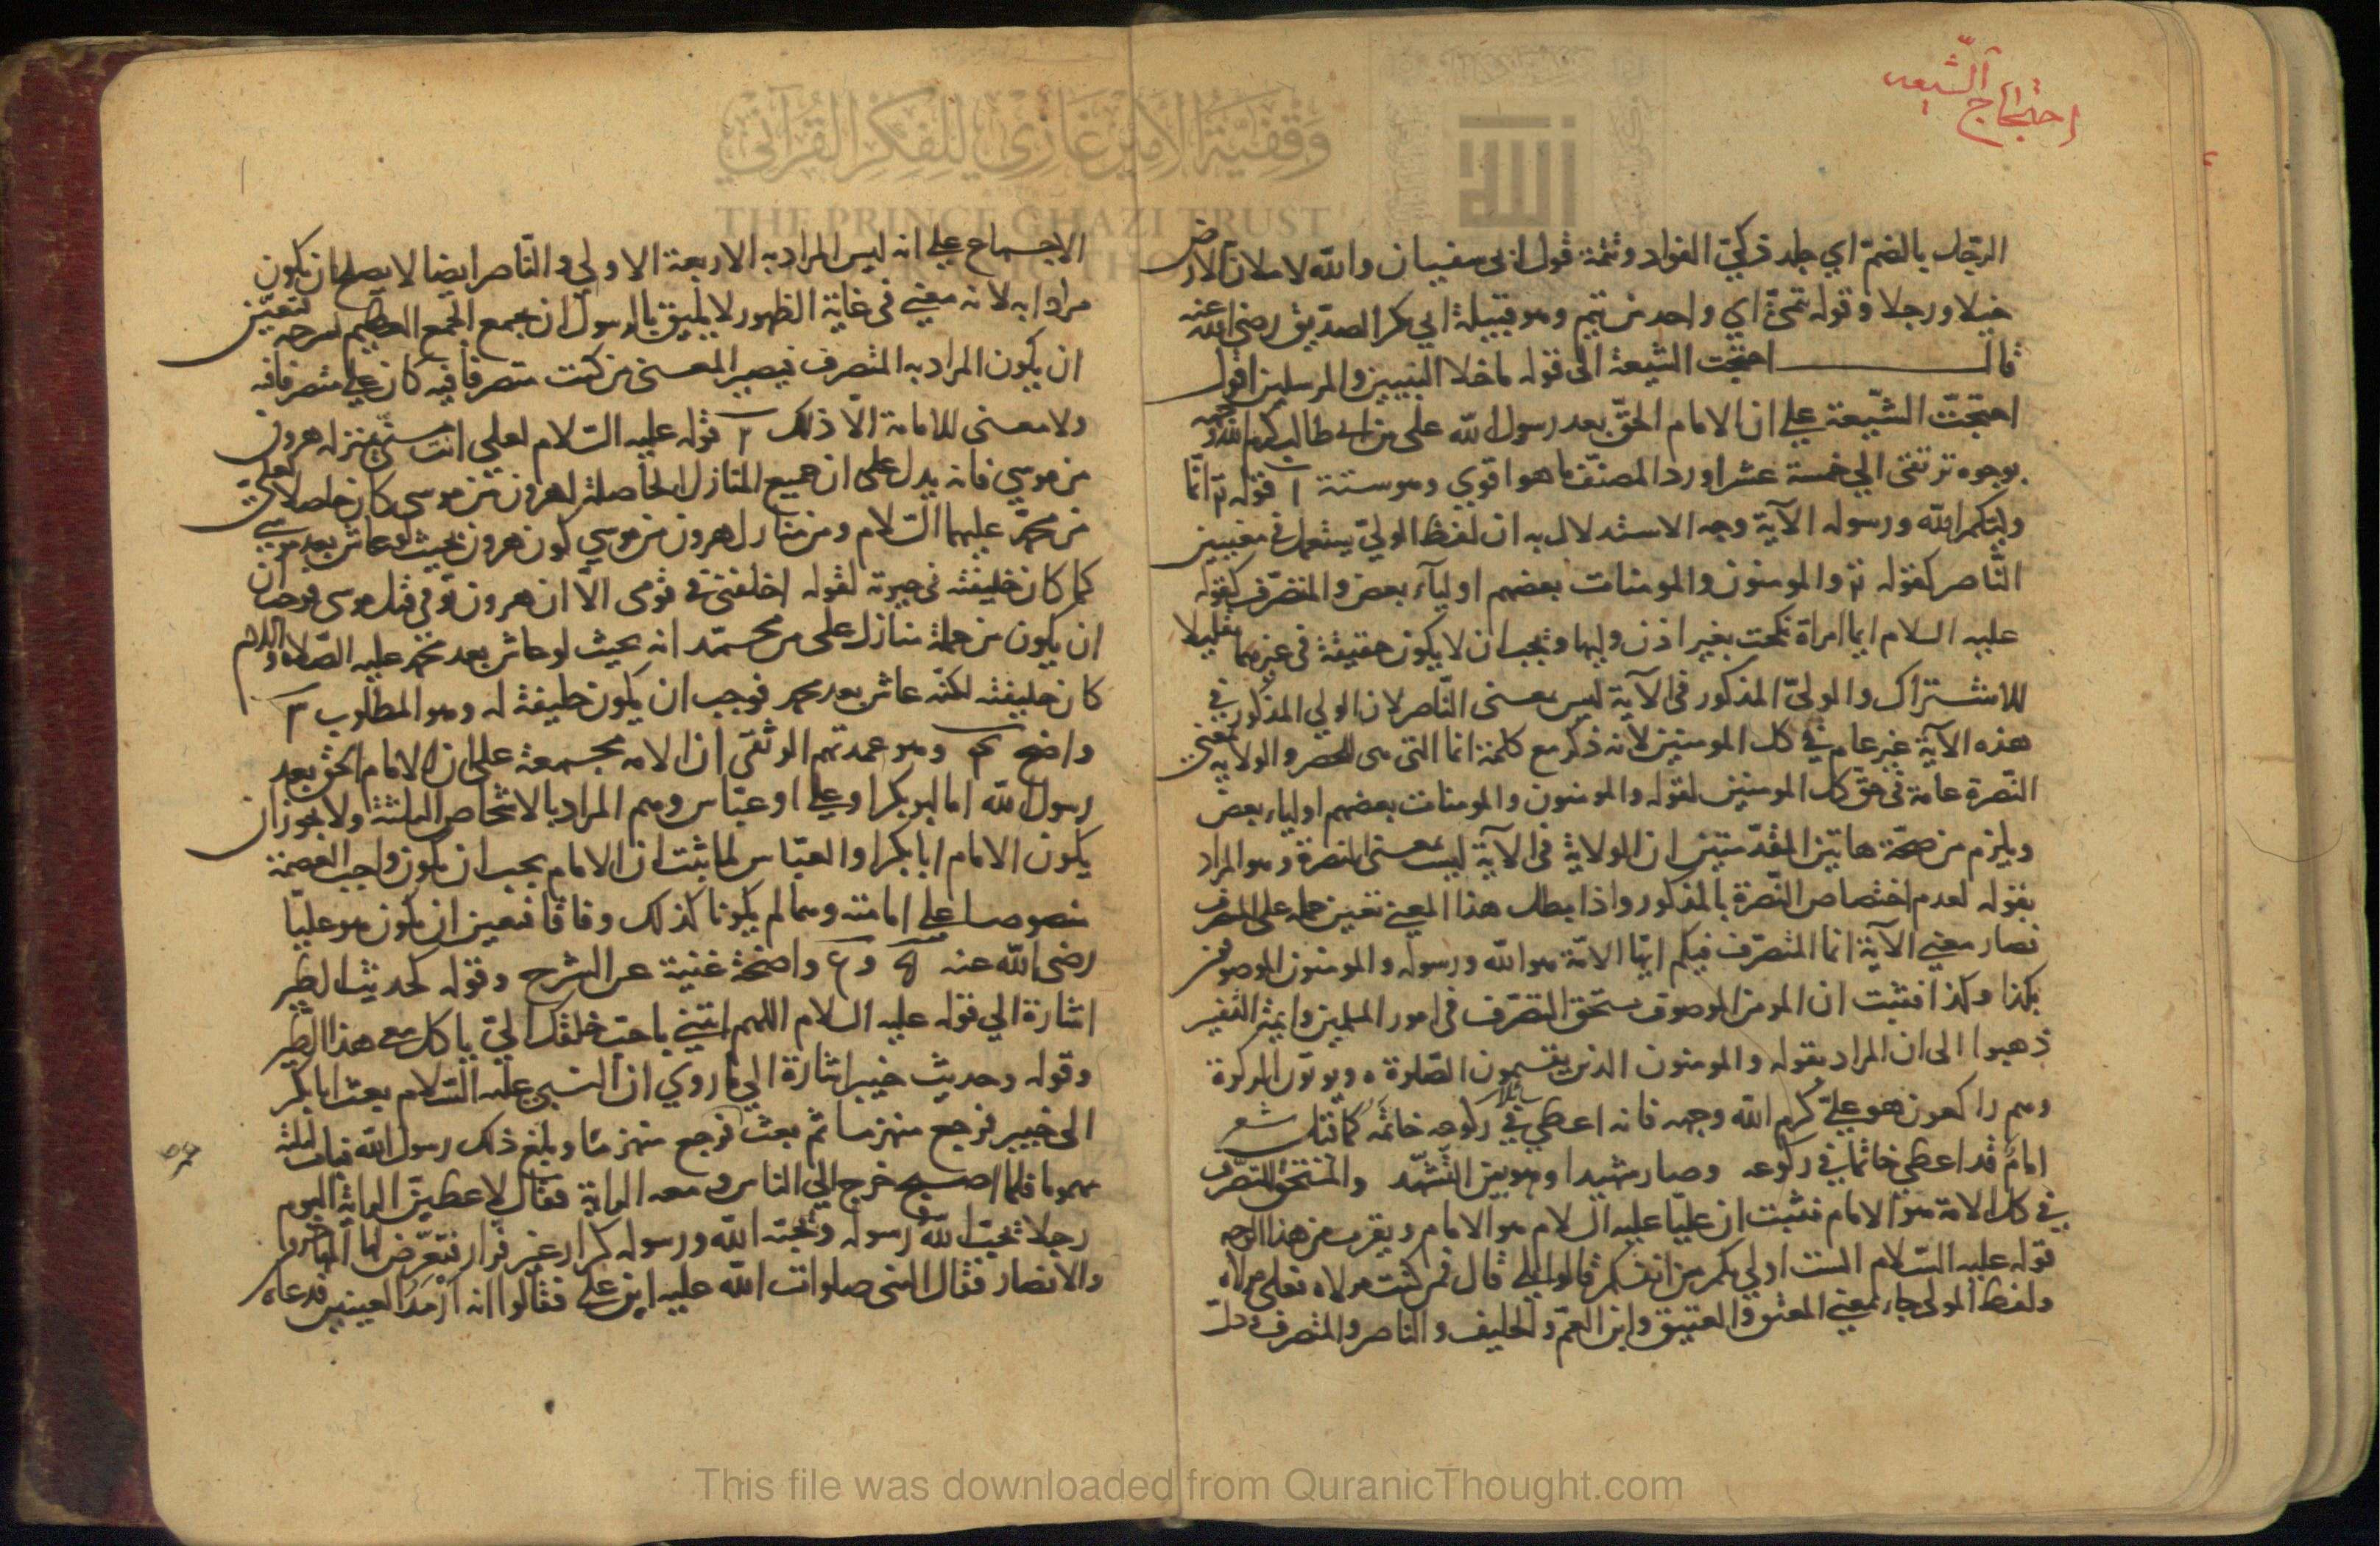 احتجاج الشيعه
الرجل بالضم اي جلد ذكي الفواد وتتمة قول ابى سفيان والله لاملان الارض
خيلا ورجلا وقوله تيمى اي واحد من تيم وهو قبيلة ابي بكر الصديق رضى الله عنه
قال احتجت الشيعة الى قوله ما خلا النبيين والمرسلين اقول
احتجّت الشّيعة على ان الامام الحقّ بعد رسول الله على بن ابى طالب كرم الله وجهه
بوجوه ترتقى الي خمسة عشر اورد المصنّف ما هو اقوي وهو ستة ا قوله تع انّما
وليّكم الله ورسوله الآية وجه الاستدلال به ان لفظ الوليّ يستعمل في معنيين
النّاصر كقوله تع والمومنون والمومنات بعضهم اوليآء بعض والمتصرّف كقوله
عليه السلام ايما امراة نكحت بغير اذن وليها ويجب ان لا يكون حقيقة فى غيرهما تقليلا
للاشتراك والوليّ المذكور فى الآية ليس بمعنى النّاصر لان الولي المذكور في
هذه الآية غير عام في كل المومنين لانه ذكر مع كلمة انما التى هى للحصر والولاية بمعنى
النّصرة عامة فى حقّ كل المومنين لقوله والمومنون والمومنات بعضهم اولياء بعض
ويلزم من صحّة هاتين المقدّمتين ان الولاية فى الآية ليست بمعنى النصرة وهو المراد
بقوله لعدم اختصاص النّصرة بالمذكور واذا بطل هذا المعني تعين حمله على المتصرف
فصار معني الآية انما المتصرّف فيكم ايّها الامّة هو الله ورسوله والمومنون الموصوفون
بكذا وكذا فثبت ان المومن الموصوف مستحق التصرّف فى امور المسلمين وايمّة التفسير
ذهبوا الى ان المراد بقوله والمومنون الذين يقيمون الصّلوة ويوتون الزكوة
وهم راكعون هو عليّ كرم الله وجهه فانه اعطي في ركوعه سائلا خاتمه كما قيل شعر
امام قد اعطي خاتما في ركوعه وصار شهيدا وهو بين التّشهّد والمستحق للتصرّف
في كل الامة هو الامام فثبت ان عليّا عليه السلام هو الامام ويقرب من هذا الوجه
قوله عليه السّلام الست اولي بكم من انفسكم قالوا بلي قال فمن كنت مولاه فعلى مولاه
ولفظ المولى جاء بمعنى المعتق والعتيق وابن العمّ والحليف والناصر والمتصرف ودلّ
الاجماع على انه ليس المراد به الاربعة الاولي والنّاصر ايضا لا يصلح ان يكون
مرادا به لانه معني فى غاية الظهور لا يليق بالرسول ان يجمع الجمع العظيم لشرحه فتعيّن
ان يكون المراد به المتصرف فيصير المعنى من كنت متصرفا فيه كان علي متصرفا فيه
ولا معنى للامامة الّا ذلك ٢ قوله عليه السّلام لعلى انت منّي بمنزلة هرون
من موسي فانه يدل على ان جميع المنازل الحاصلة لهرون من موسى كان حاصلا لعلي
من محمّد عليهما السّلام ومن منازل هرون من موسي كون هرون بحيث لو عاش بعد موسي
كما كان خليفته فى حيوته لقوله اخلفنى فى قومى الّا ان هرون توفي قبل موسى فوجب
ان يكون من جملة منازل على من محمّد انه بحيث لو عاش بعد محمد عليه الصّلاة والسلام
كان خليفته لكنّه عاش بعد محمد فوجب ان يكون خليفة له وهو المطلوب ٣
واضح ٤ وهو عمدتهم الوثقى ان الامه مجمعة على ان الامام الحق بعد
رسول الله اما ابو بكر او علي او عبّاس وهم المراد بالاشخاص الثلثة ولا يجوز ان
يكون الامام ابا بكر او العبّاس لما ثبت ان الامام يجب ان يكون واجب العصمة
منصوصا على امامته وهما لم يكونا كذلك وفاقا فتعين ان يكون هو عليّا
رضى الله عنه ٥ و ٦ واضحة غنية عن الشرح وقوله كحديث الطير
اشارة الي قوله عليه السلام اللهم ائتني باحبّ خلقك اليّ ياكل معي هذا الطّير
وقوله وحديث خيبر اشارة الي ما روي ان النبى عليه السّلام بعث ابا بكر
الى خيبر فرجع منهزما ثم بعث فرجع منهزما وبلغ ذلك رسول الله فبات ليلته
مهموما فلما اصبح خرج الي الناس ومعه الراية فقال لاعطينّ الراية اليوم
رجلا يحبّ الله ورسوله ويحبّه الله ورسوله كرار غير فرّار فتعرّض لها المهاجرون
والانصار فقال النبى صلوات الله عليه اين علي فقالوا انه ارمد العينين فدعاه
This file was downloaded from QuranicThought.com
وقفية الأمير غازي للفكر القرآني
THE PRINCE GHAZI TRUST